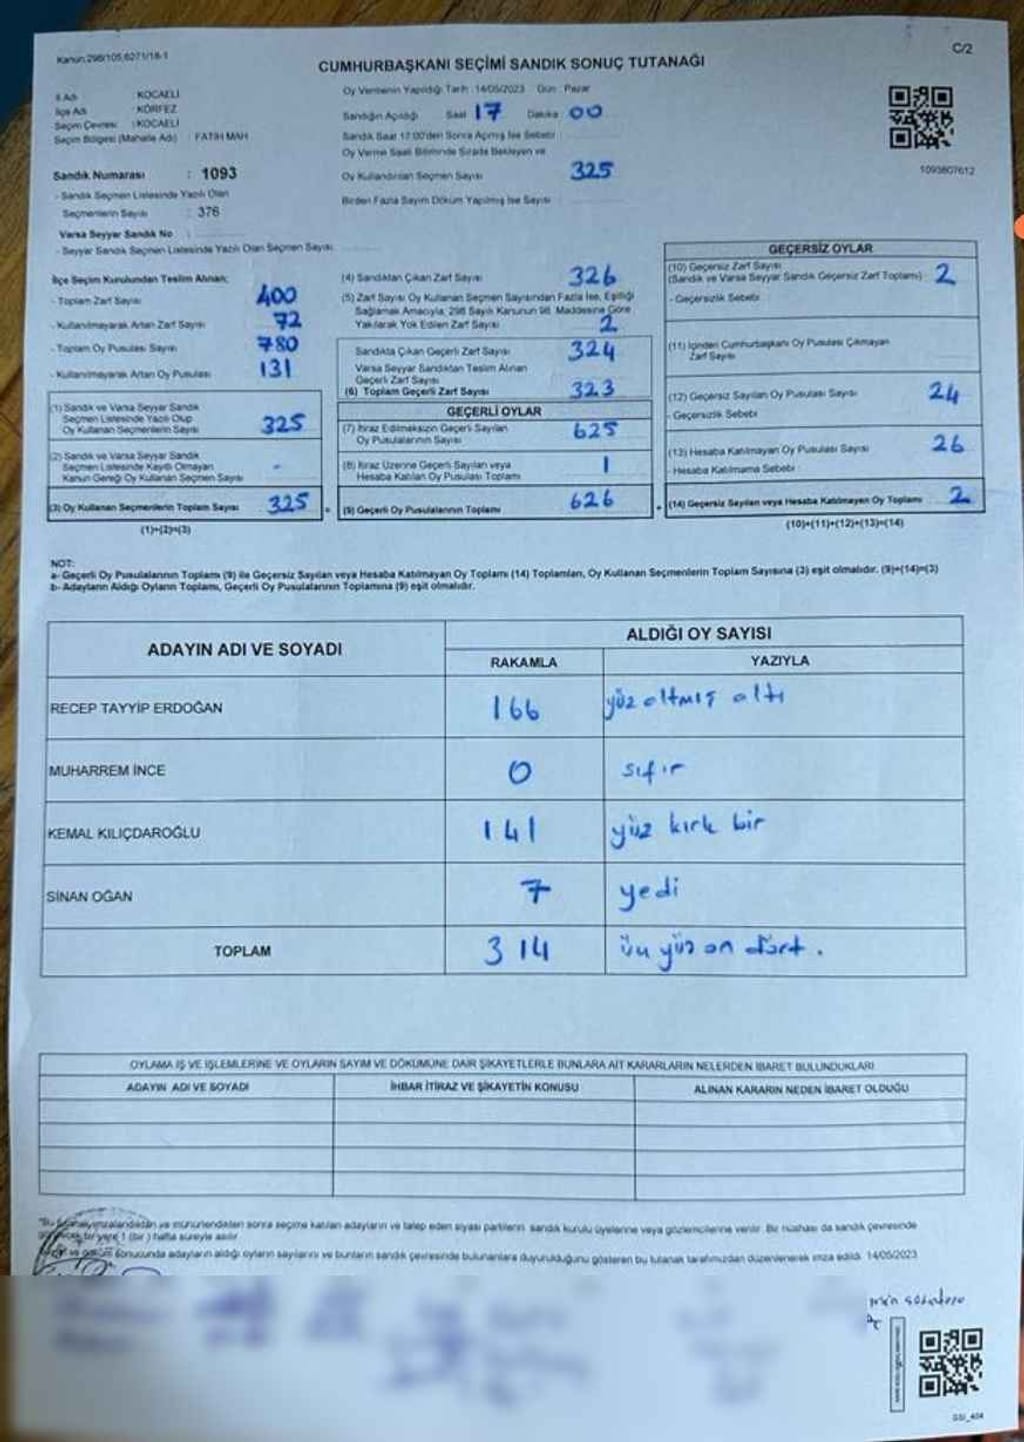 Kanun:298/105,6271/18-1
C/2
CUMHURBAŞKANI SEÇİMİ SANDIK SONUÇ TUTANAĞI
İl Adı : KOCAELİ
İlçe Adı : KÖRFEZ
Seçim Çevresi : KOCAELİ
Seçim Bölgesi (Mahalle Adı) : FATİH MAH
Oy Vermenin Yapıldığı Tarih : 14/05/2023 Gün : Pazar
Sandığın Açıldığı Saat 17 Dakika 00
Sandık Saat 17:00'den Sonra Açılmış İse Sebebi :
Oy Verme Saati Bitiminde Sırada Bekleyen ve
Oy Kullandırılan Seçmen Sayısı 325
Birden Fazla Sayım Döküm Yapılmış İse Sayısı
1093807612
Sandık Numarası : 1093
- Sandık Seçmen Listesinde Yazılı Olan
Seçmenlerin Sayısı : 376
Varsa Seyyar Sandık No :
- Seyyar Sandık Seçmen Listesinde Yazılı Olan Seçmen Sayısı:
İlçe Seçim Kurulundan Teslim Alınan;
- Toplam Zarf Sayısı 400
- Kullanılmayarak Artan Zarf Sayısı 72
- Toplam Oy Pusulası Sayısı 780
- Kullanılmayarak Artan Oy Pusulası 131
(1) Sandık ve Varsa Seyyar Sandık
Seçmen Listesinde Yazılı Olup
Oy Kullanan Seçmenlerin Sayısı 325
(2) Sandık ve Varsa Seyyar Sandık
Seçmen Listesinde Kayıtlı Olmayan
Kanun Gereği Oy Kullanan Seçmen Sayısı -
(3) Oy Kullanan Seçmenlerin Toplam Sayısı 325
(1)+(2)=(3)
(4) Sandıktan Çıkan Zarf Sayısı 326
(5) Zarf Sayısı Oy Kullanan Seçmen Sayısından Fazla İse, Eşitliği
Sağlamak Amacıyla, 298 Sayılı Kanunun 98. Maddesine Göre
Yakılarak Yok Edilen Zarf Sayısı 2
Sandıkta Çıkan Geçerli Zarf Sayısı 324
Varsa Seyyar Sandıktan Teslim Alınan
Geçerli Zarf Sayısı
(6) Toplam Geçerli Zarf Sayısı 323
GEÇERLİ OYLAR
(7) İtiraz Edilmeksizin Geçerli Sayılan
Oy Pusulalarının Sayısı 625
(8) İtiraz Üzerine Geçerli Sayılan veya
Hesaba Katılan Oy Pusulası Toplamı 1
(9) Geçerli Oy Pusulalarının Toplamı 626
GEÇERSİZ OYLAR
(10) Geçersiz Zarf Sayısı
(Sandık ve Varsa Seyyar Sandık Geçersiz Zarf Toplamı) 2
- Geçersizlik Sebebi
(11) İçinden Cumhurbaşkanı Oy Pusulası Çıkmayan
Zarf Sayısı
(12) Geçersiz Sayılan Oy Pusulası Sayısı 24
- Geçersizlik Sebebi
(13) Hesaba Katılmayan Oy Pusulası Sayısı 26
- Hesaba Katılmama Sebebi :
(14) Geçersiz Sayılan veya Hesaba Katılmayan Oy Toplamı 2
(10)+(11)+(12)+(13)=(14)
NOT:
a- Geçerli Oy Pusulalarının Toplamı (9) ile Geçersiz Sayılan veya Hesaba Katılmayan Oy Toplamı (14) Toplamları, Oy Kullanan Seçmenlerin Toplam Sayısına (3) eşit olmalıdır. (9)+(14)=(3)
b- Adayların Aldığı Oyların Toplamı, Geçerli Oy Pusulalarının Toplamına (9) eşit olmalıdır.
ADAYIN ADI VE SOYADI
ALDIĞI OY SAYISI
RAKAMLA YAZIYLA
RECEP TAYYİP ERDOĞAN 166 yüz altmış altı
MUHARREM İNCE 0 sıfır
KEMAL KILIÇDAROĞLU 141 yüz kırk bir
SİNAN OĞAN 7 yedi
TOPLAM 314 üç yüz on dört.
OYLAMA İŞ VE İŞLEMLERİNE VE OYLARIN SAYIM VE DÖKÜMÜNE DAİR ŞİKAYETLERLE BUNLARA AİT KARARLARIN NELERDEN İBARET BULUNDUKLARI
ADAYIN ADI VE SOYADI İHBAR İTİRAZ VE ŞİKAYETİN KONUSU ALINAN KARARIN NEDEN İBARET OLDUĞU
imzalandıktan ve mühürlendikten sonra seçime katılan adayların ve talep eden siyasi partilerin sandık kurulu üyelerine veya gözlemcilerine verilir. Bir nüshası da sandık çevresinde
1 (bir) hafta süreyle asılır
ve döküm sonucunda adayların aldığı oyların sayılarını ve bunların sandık çevresinde bulunanlara duyurulduğunu gösteren bu tutanak tarafımızdan düzenlenerek imza edildi. 14/05/2023
GSI_404